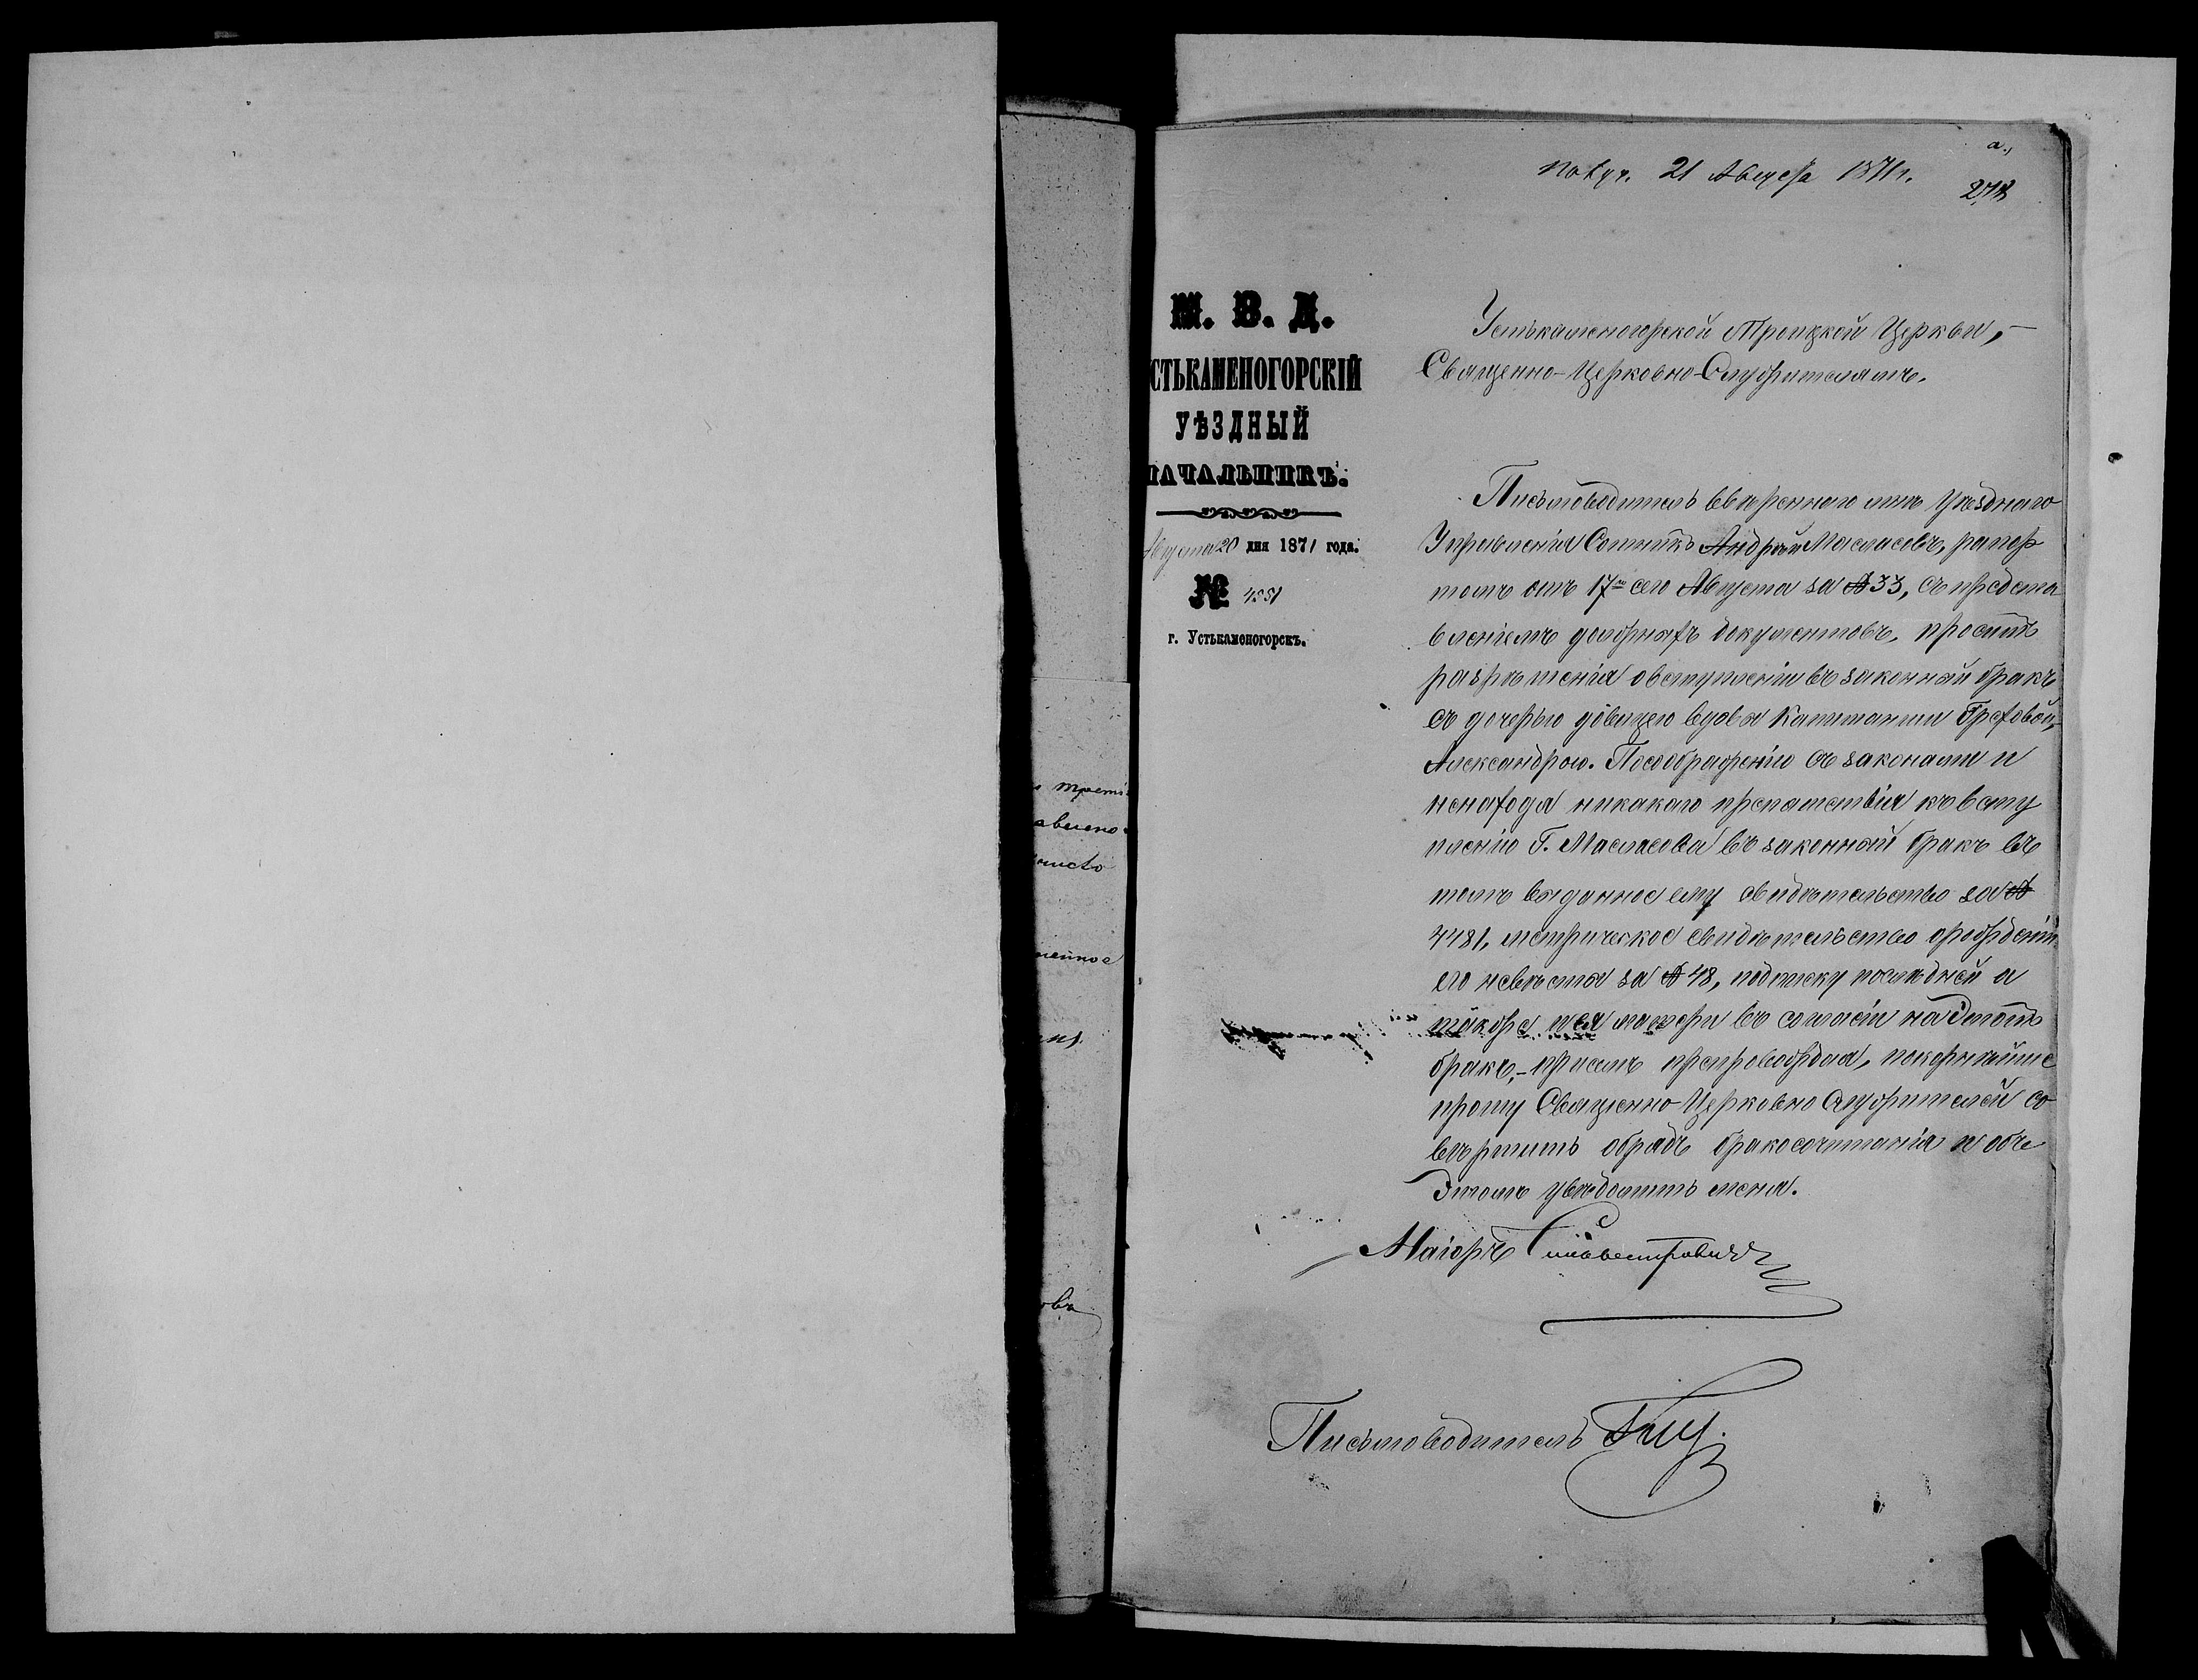 Получ. 21 Августа 1871 г.
а.,
М. В. Д.
СТЬКАМЕНОГОРСКІЙ
УѢЗДНЫЙ
НАЧАЛЬНИКЪ.
Августа 20 дня 1871 года.
№
г. Устькаменогорскъ.
Устькаменогорской Троицкой Церкви,
Священно-Церковно-Служителямъ.
Письмоводитель ввѣреннаго мнѣ Уѣзднаго
Управленія Сотникъ Андрей Масласовъ, рапор
томъ отъ 17го сего Августа за № 33, съ предста
вленіемъ должныхъ документовъ, проситъ
разрѣшенія о вступленіи въ законный бракъ
съ дочерью дѣвицею вдовы Капитанши Греховой,
Александрою. По соображенію съ законами и
не находя никакого препятствія къ всту
пленію Г. Масласова въ законный бракъ въ
томъ выданное ему свидѣтельство за №
4481, метрическое свидѣтельство о рожденіи
его невѣсты за № 48, подписку послѣдней а
также и ея матери въ согласіи на этотъ
бракъ,- при семъ препровождая, покорнѣйше
прошу Священно-Церковно Служителей со
вершить обрядъ бракосочитанія и объ
этомъ увѣдомить меня.
Маіоръ Сильвестровичъ
Письмоводитель
трети